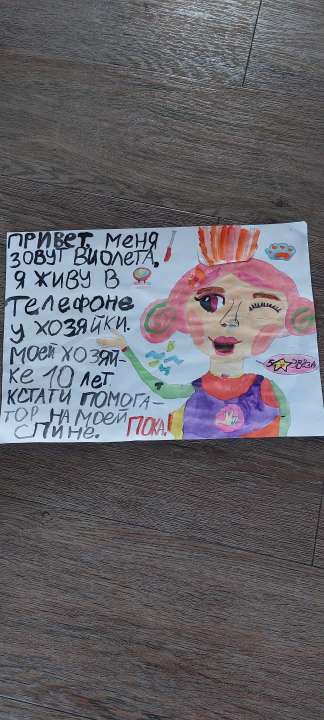 ПРИВЕТ, МЕНЯ
ЗОВУТ ВИОЛЕТА.
Я ЖИВУ В
ТЕЛЕФОНЕ
У ХОЗЯЙКИ.
МОЕЙ ХОЗЯЙ-
КЕ 10 ЛЕТ.
КСТАТИ ПОМОГА-
ТОР НА МОЕЙ
СПИНЕ. ПОКА!